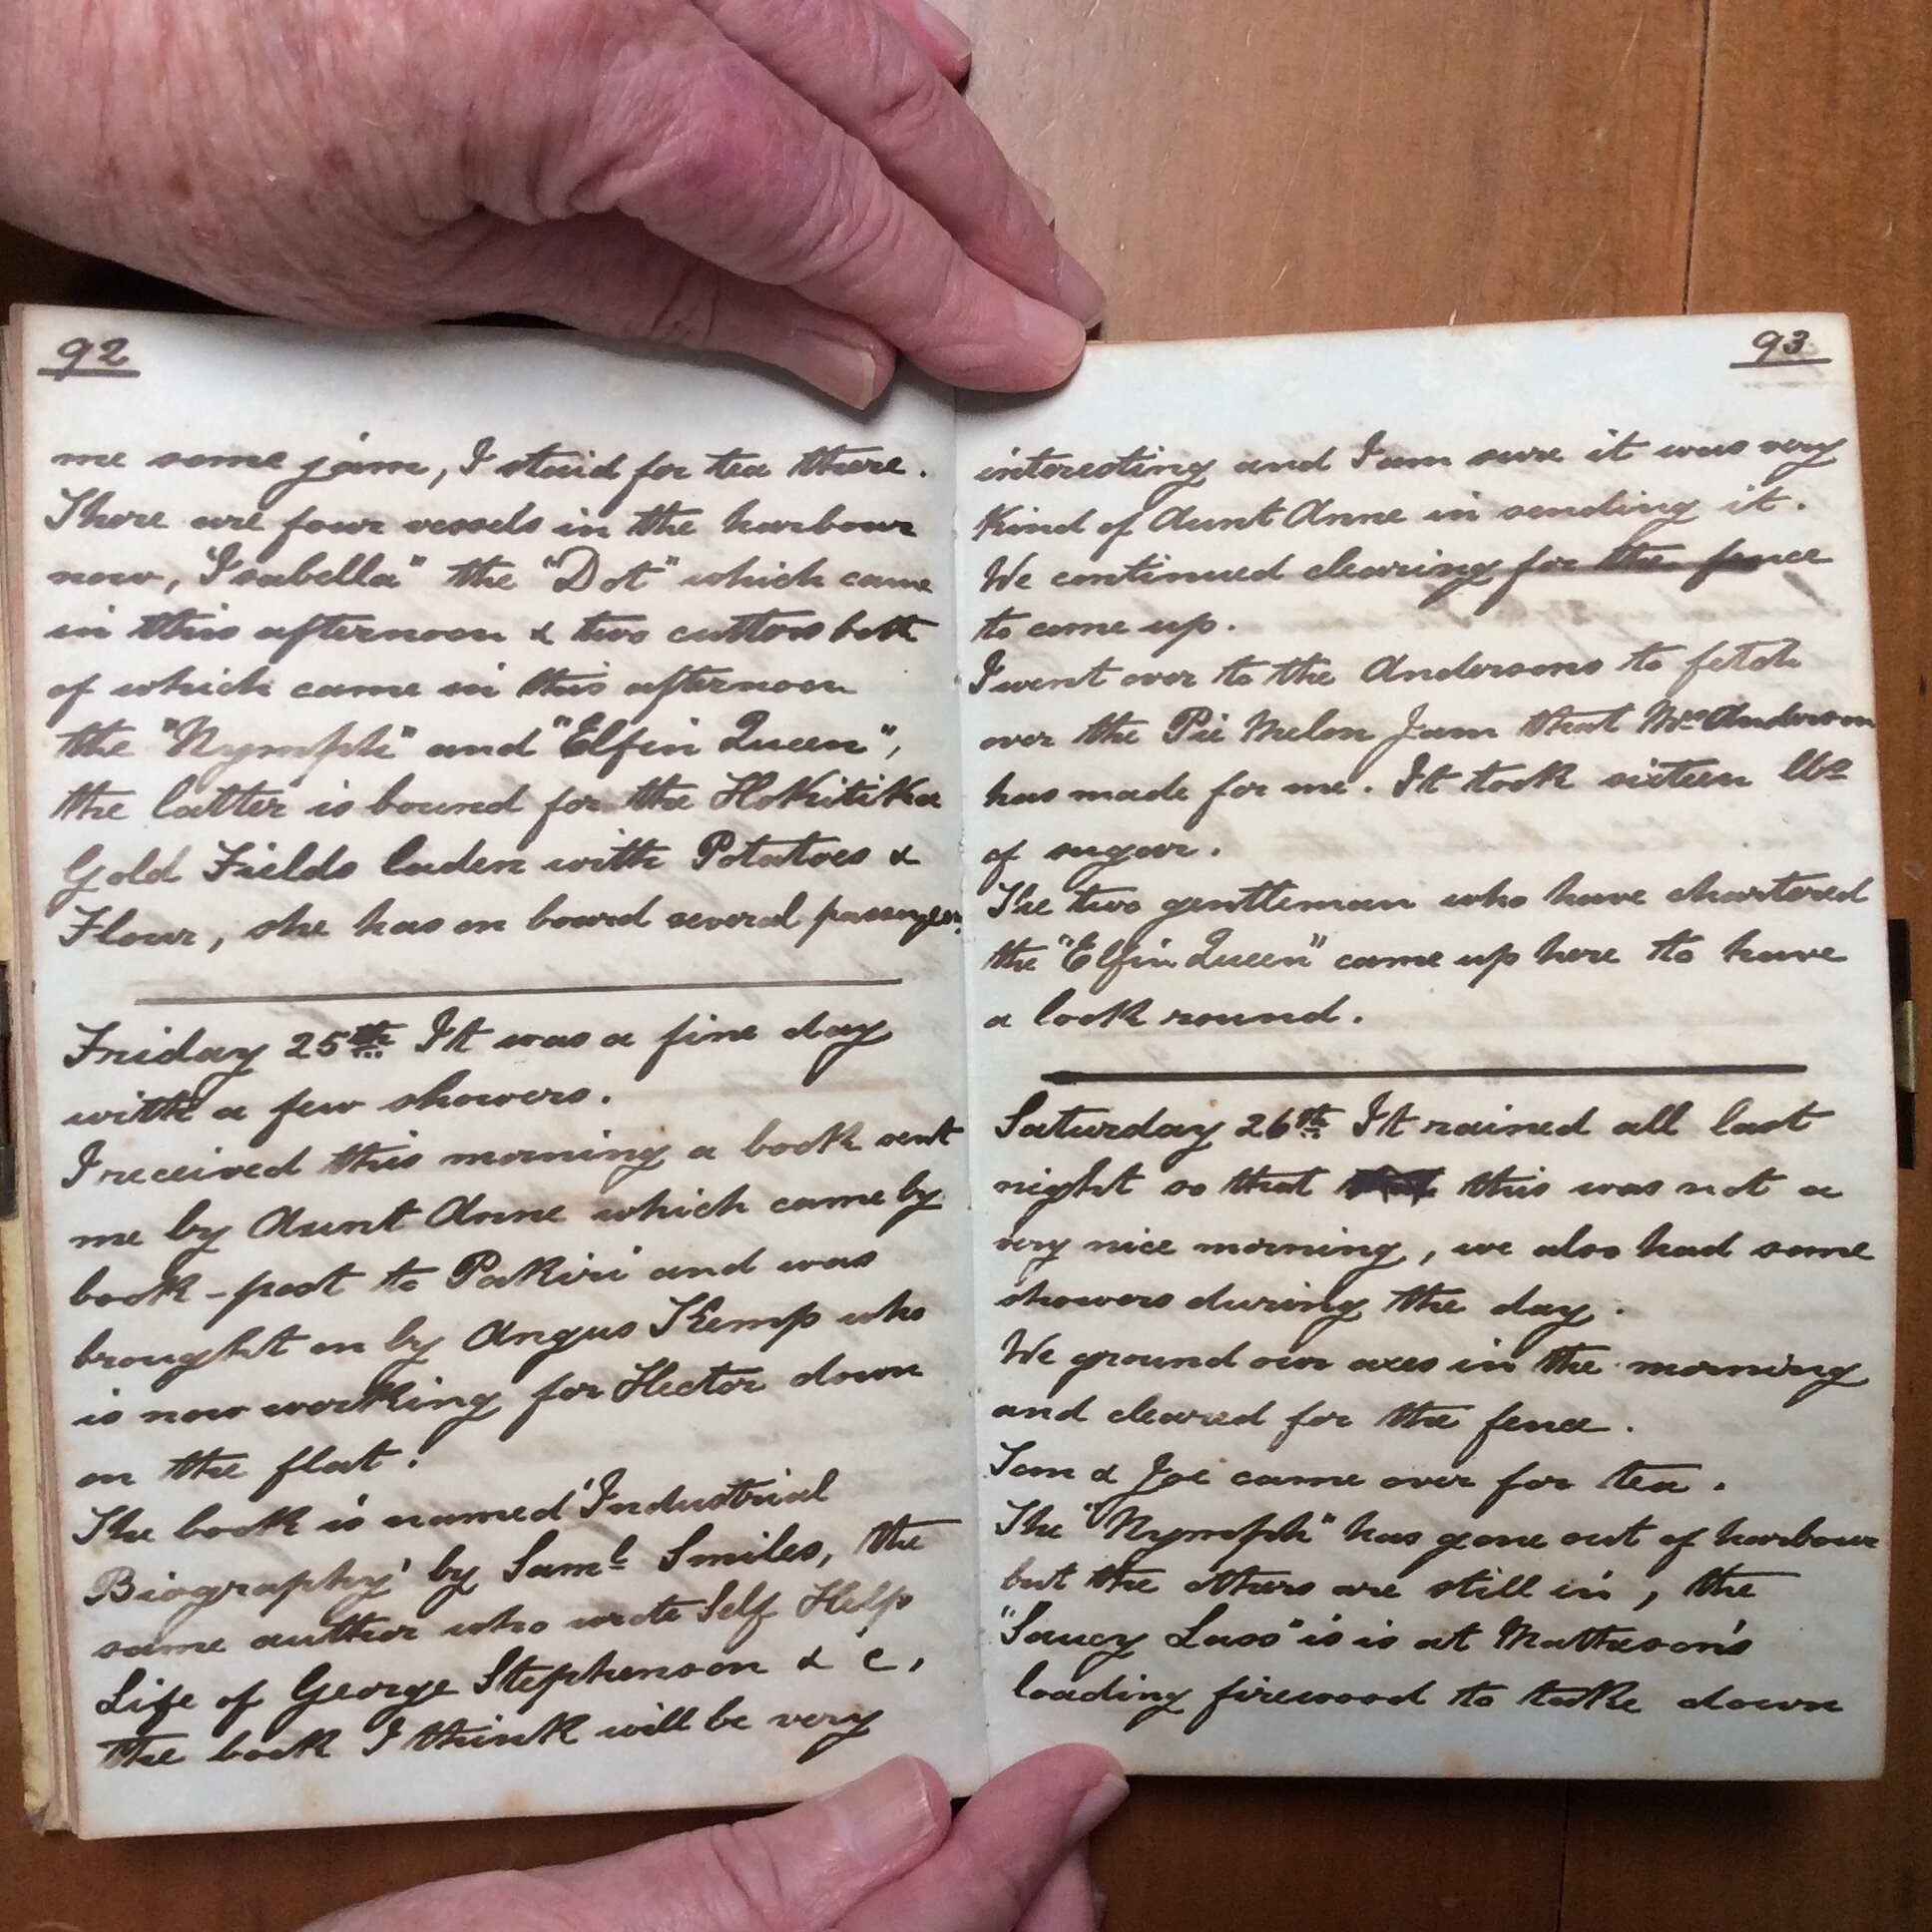 92
me some jam, I staid for tea there.
There are four vessels in the harbour
now, "Isabella" the "Dot" which came
in this afternoon & two cutters both
of which came in this afternoon
the "Nymph" and "Elfin Queen",
the latter is bound for the Hokitika
Gold Fields laden with Potatoes &
Flour, she has on board several passengers.
Friday 25th It was a fine day
with a few showers.
I received this morning a book sent
me by Aunt Anne which came by
book-post to Pakiri and was
brought on by Angus Kemp who
is now working for Hector down
on the flat.
The book is named 'Industrial
Biography' by Saml Smiles, the
same author who wrote Self Help
Life of George Stephenson & c,
The book I think will be very
93
interesting and I am sure it was very
kind of Aunt Anne in sending it.
We continued clearing for the fence
to come up.
I went over to the Andersons to fetch
over the Pie Melon Jam that Mrs Anderson
has made for me. It took sixteen lbs
of sugar.
The two gentleman who have chartered
the "Elfin Queen" came up here to have
a look round.
Saturday 26th It rained all last
night so that this was not a
very nice morning, we also had some
showers during the day.
We ground our axes in the morning
and cleared for the fence.
Tom & Joe came over for tea.
The "Nymph" has gone out of harbour
but the others are still in, the
"Saucy Lass" is is at Matheson's
loading firewood to take down